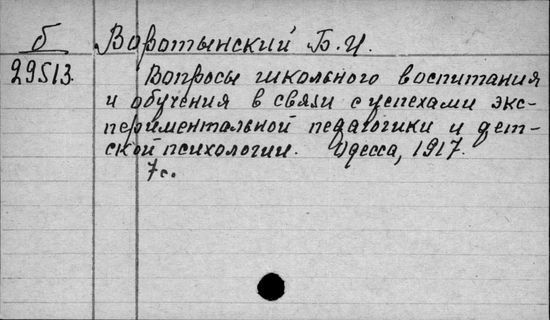 б Воротынский Б. И.
29513. Вопросы школьного воспитания
и обучения в связи с успехами экс-
периментальной педагогики и дет-
ской психологии. Одесса, 1917.
7 с.